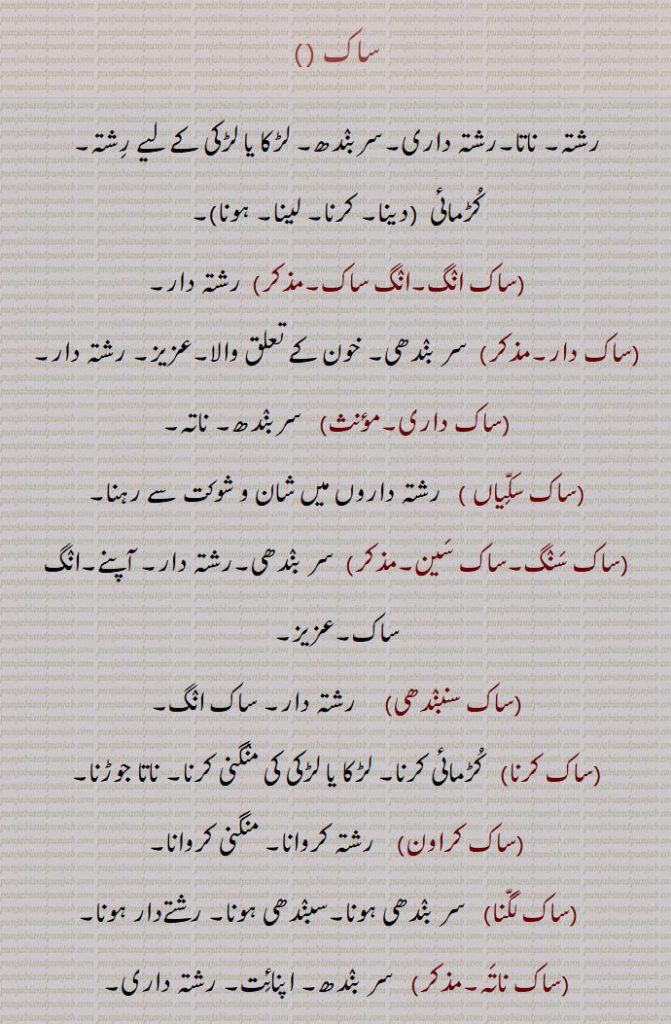 ساک ()
رشتہ۔ ناتا۔رشتہ داری۔سر بنْدھ۔ لڑکا یا لڑکی کے لیے رِشتہ۔
کُڑمائی (دینا۔ کرنا۔ لینا۔ ہونا)۔
(ساک انْگ۔انْگ ساک۔مذکر) رشتہ دار۔
(ساک دار۔مذکر) سر بنْدھی۔ خون کے تعلق والا۔عزیز۔ رشتہ دار۔
(ساک داری۔مؤنث) سربندھ۔ ناتہ۔
(ساک سکِّیاں ) رشتہ داروں میں شان و شوکت سے رہنا۔
(ساک سَنْگ۔ساک سَین۔مذکر) سر بنْدھی۔رشتہ دار۔ آپنے۔انْگ
ساک۔عزیز۔
(ساک سنبنْدھی) رشتہ دار۔ ساک انْگ۔
(ساک کرنا) کُڑمائی کرنا۔ لڑکا یا لڑکی کی منْگنی کرنا۔ ناتا جوڑنا۔
(ساک کراون) رشتہ کروانا۔ منگنی کروانا۔
(ساک لگّنا) سر بنْدھی ہونا۔سبنْدھی ہونا۔ رشتےدار ہونا۔
(ساک ناتَہ۔مذکر) سر بندھ۔ اپنائِت۔ رشتہ داری۔